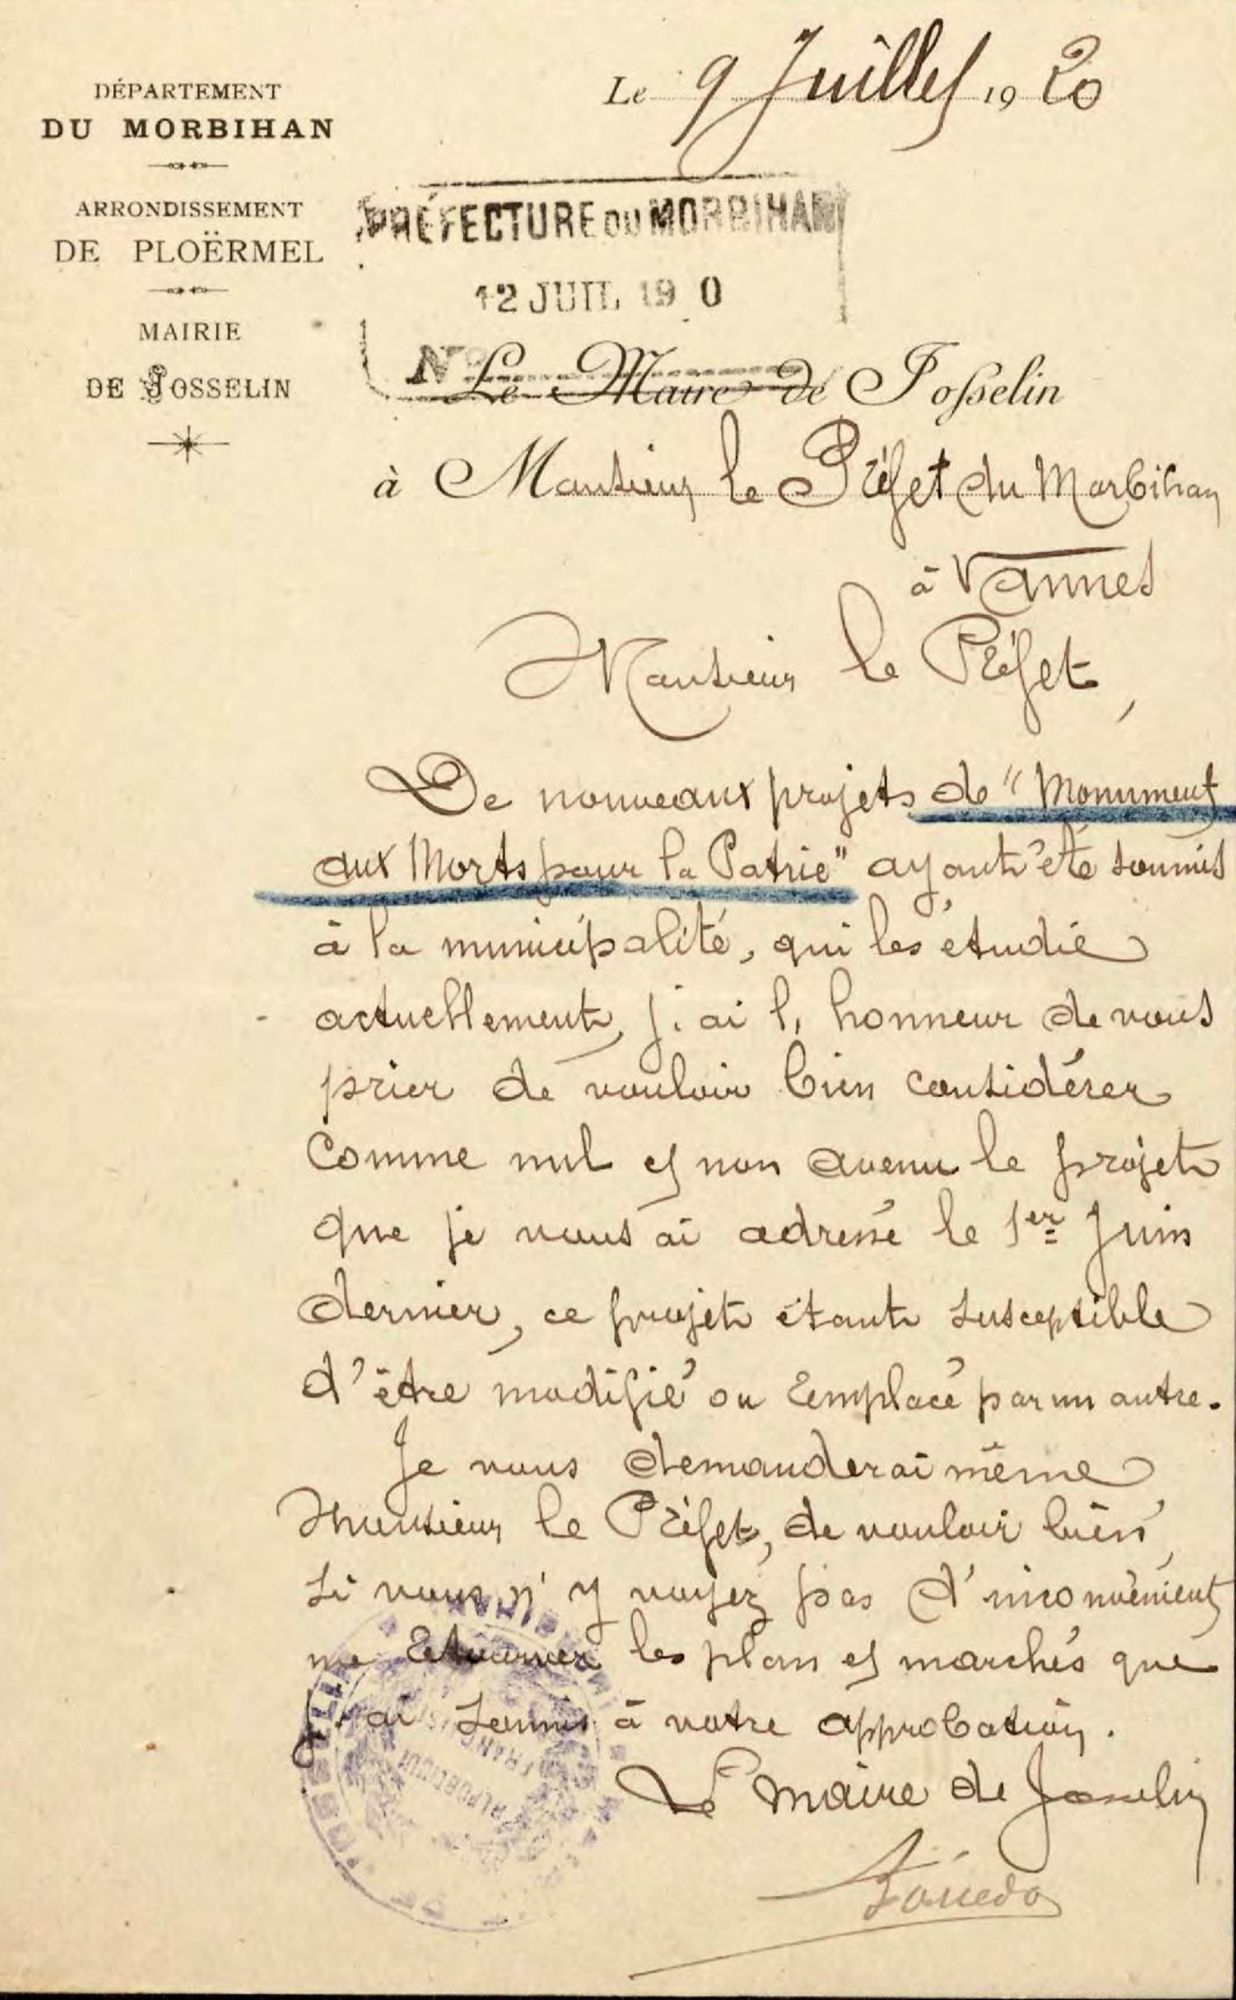 DÉPARTEMENT
DU MORBIHAN
ARRONDISSEMENT
DE PLOËRMEL
MAIRIE
DE JOSSELIN
Le 9 Juillet 1920
PRÉFECTURE DU MORBIHAN
12 JUIL 19 0
N°
Le Maire de Josselin
à Monsieur le Préfet du Morbihan
à Vannes
Monsieur le Préfet,
De nouveaux projets de "Monument
aux Morts pour la Patrie" ayant été soumis
à la municipalité, qui les étudie
actuellement, j'ai l'honneur de vous
prier de vouloir bien considérer
comme nul et non avenu le projet
que je vous ai adressé le 1er Juin
dernier, ce projet étant susceptible
d'être modifié ou remplacé par un autre.
Je vous demanderai même
Monsieur le Préfet, de vouloir bien,
si vous n'y voyez pas d'inconvénient
me retourner les plan et marchés que
j'ai soumis à votre approbation.
Le Maire de Josselin
RÉPUBLIQUE
FRANÇ